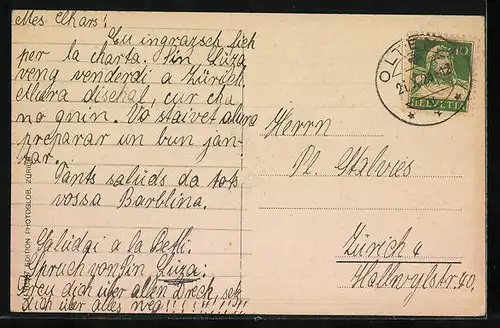 Mes Chars!
Eu ingrazch fich
per la charta. Pin Lüza
veng venderdi a Zürich,
ellura dischal, cur cha
no gnin. Vo staivet allura
preparar un bun jan-
tar.
Tants salüds da tots
vossa Barblina.
Salüdai a la Betti.
Spruch von Pin Lüza:
Freu dich über allen Dreck, setz
dich über alles weg!!!!!!!!!!
EDITION PHOTOGLOB, ZÜRICH
OLTEN
10
HELVETIA
Herrn
Pl. Stalvies
Zürich 4
Hallwylstr. 40.